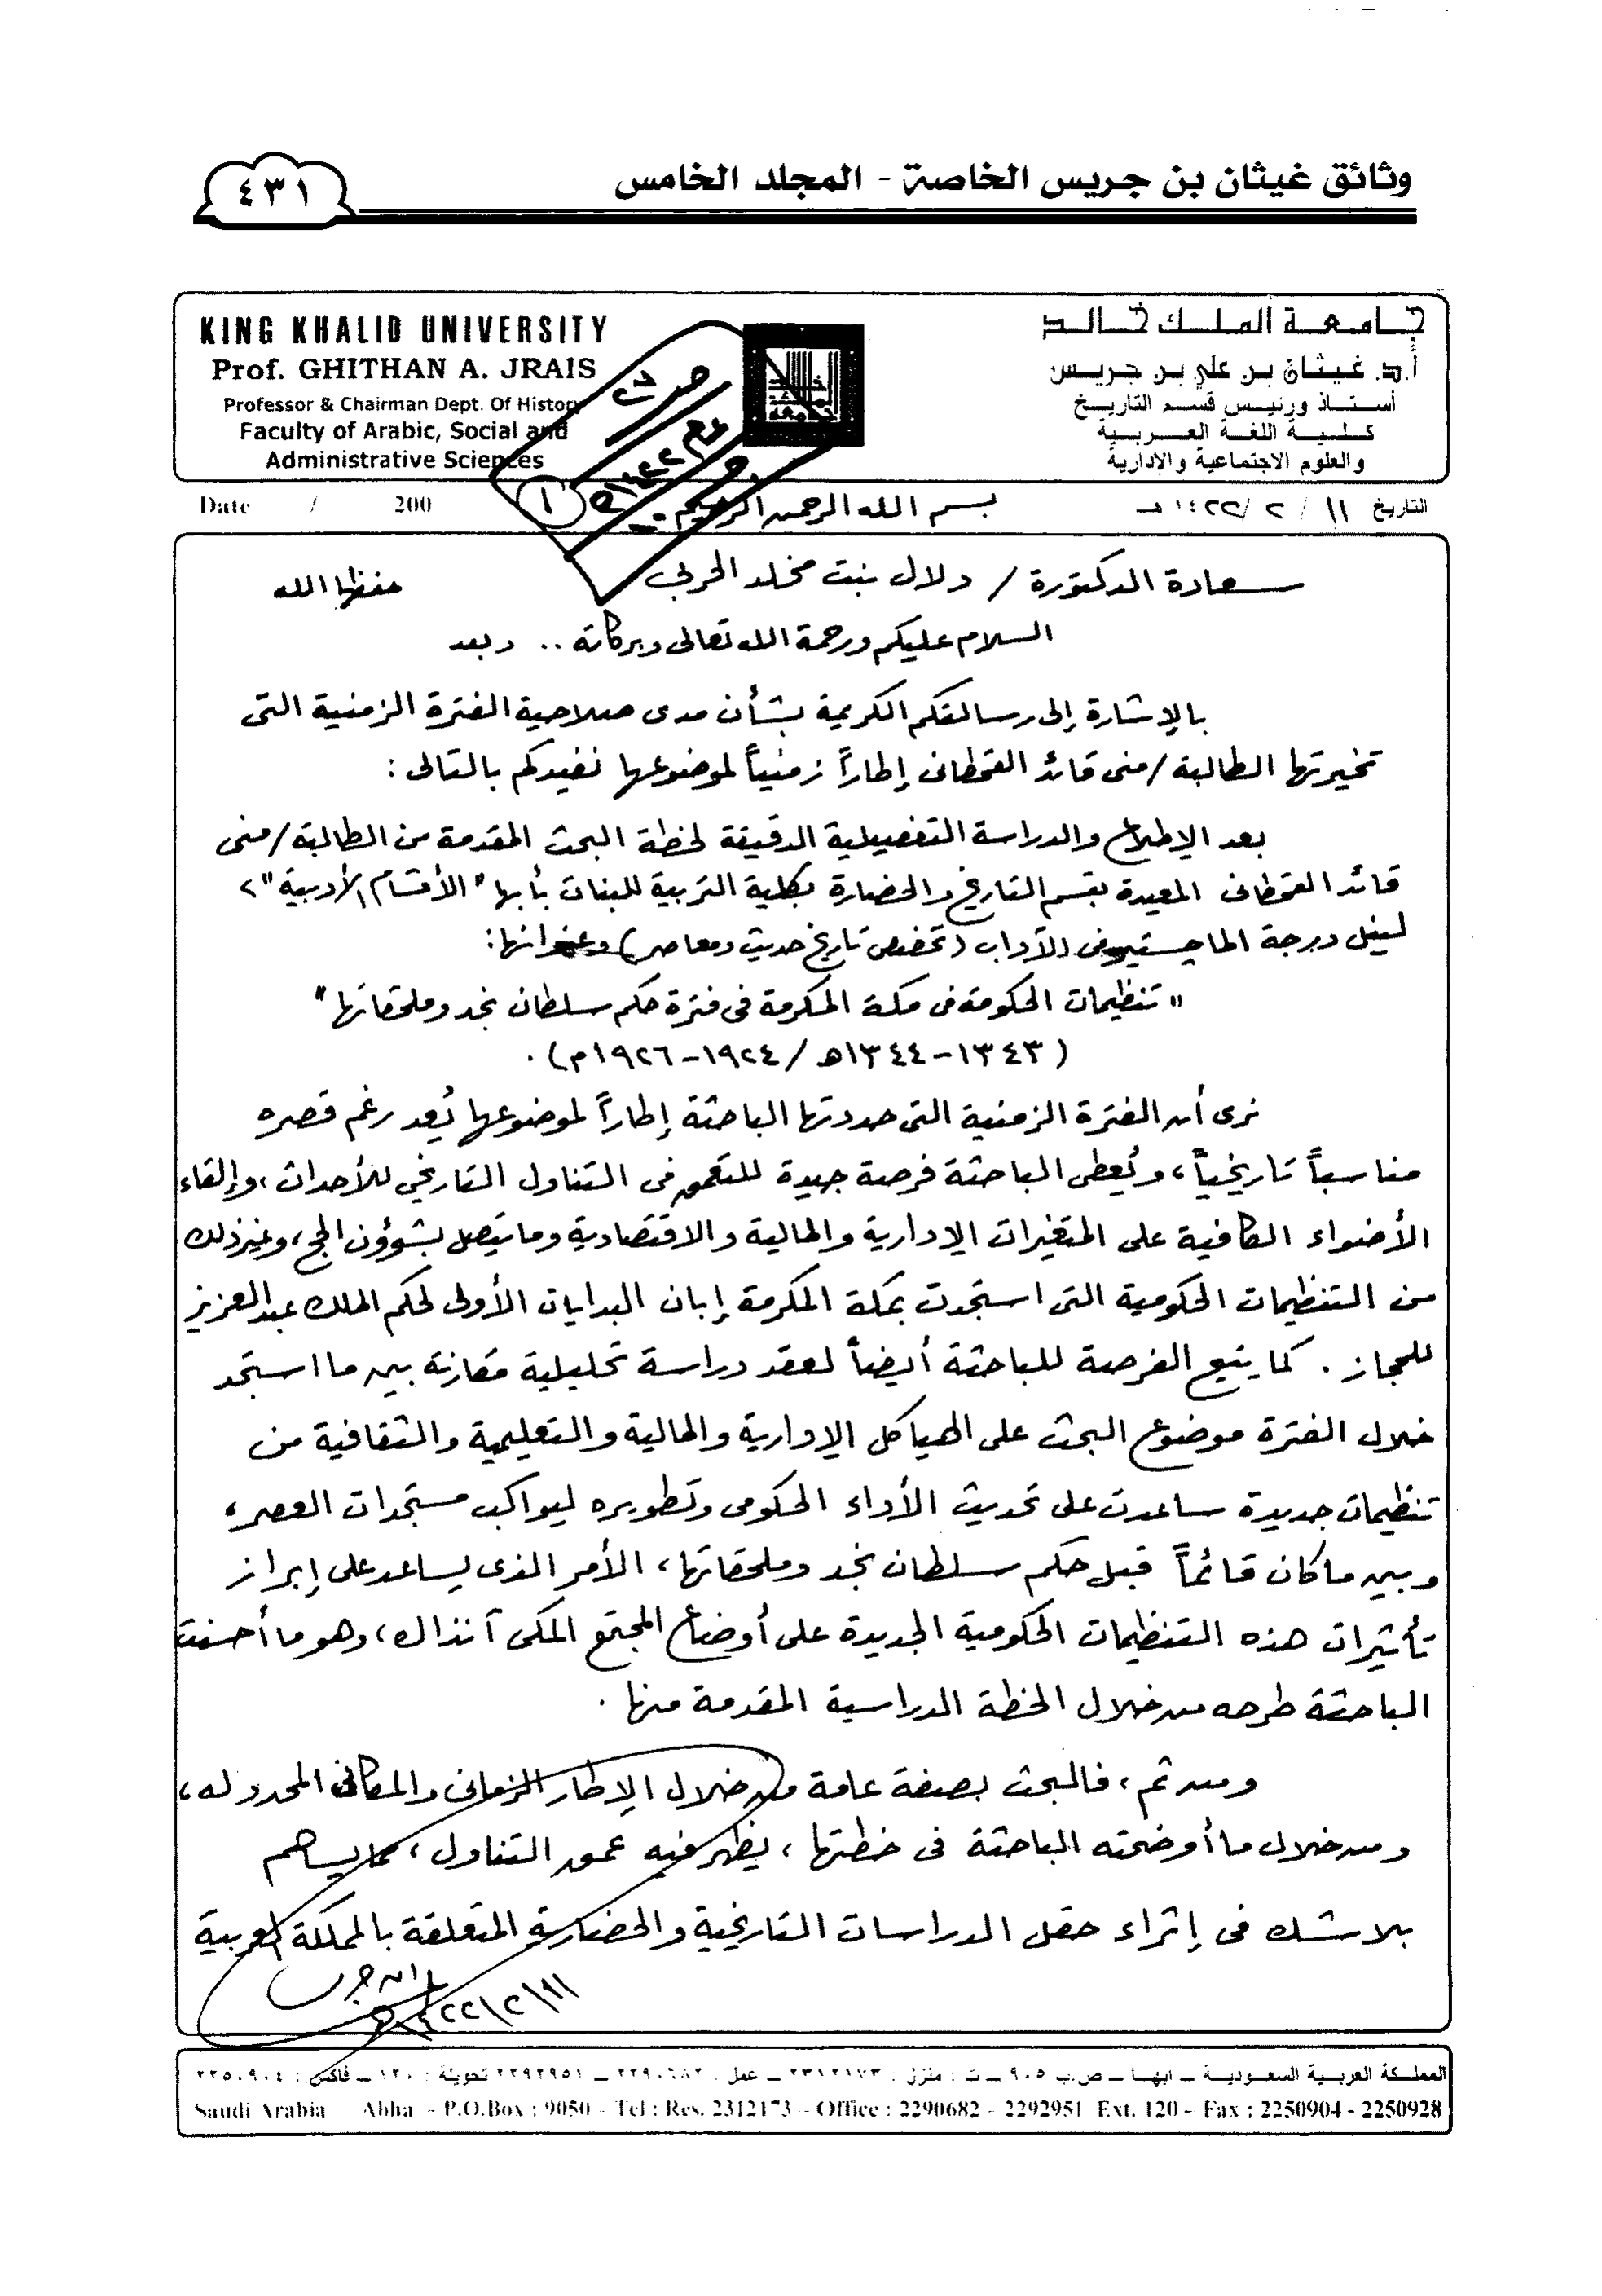 وثائق غيثان بن جريس الخاصة - المجلد الخامس
٤٣١
KING KHALID UNIVERSITY
Prof. GHITHAN A. JRAIS
Professor & Chairman Dept. Of History
Faculty of Arabic, Social and
Administrative Sciences
جامعة الملك خالد
أ.د. غيثان بن علي بن جريس
أستاذ ورئيس قسم التاريخ
كلية اللغة العربية
والعلوم الاجتماعية والإدارية
التاريخ ١١ / ٢ / ١٤٢٢هـ
بسم الله الرحمن الرحيم
Date / 200
سعادة الدكتورة / دلال بنت مخلد الحربي حفظها الله
السلام عليكم ورحمة الله تعالى وبركاته .. وبعد
بالإشارة إلى رسالتكم الكريمة بشأن مدى صلاحية الفترة الزمنية التى
تخيرتها الطالبة / منى قائد القحطانى إطاراً زمنياً لموضوعها نفيدكم بالتالى :
بعد الإطلاع والدراسة التفصيلية الدقيقة لخطة البحث المقدمة من الطالبة / منى
قائد القحطانى المعيدة بقسم التاريخ والحضارة بكلية التربية للبنات بأبها "الأقسام الأدبية"
لنيل درجة الماجستير فى الآداب (تخصص تاريخ حديث ومعاصر) وعنوانها:
"تنظيمات الحكومة فى مكة المكرمة فى فترة حكم سلطان نجد وملحقاتها"
(١٣٤٣-١٣٤٤هـ / ١٩٢٤-١٩٢٦م).
نرى أن الفترة الزمنية التى حددتها الباحثة إطاراً لموضوعها يُعد رغم قصره
مناسباً تاريخياً، ويُعطى الباحثة فرصة جيدة للتعمق فى التناول التاريخي للأحداث، وإلقاء
الأضواء الكافية على المتغيرات الإدارية والمالية والاقتصادية وما يتصل بشؤون الحج، وغير ذلك
من التنظيمات الحكومية التى استجدت بمكة المكرمة إبان البدايات الأولى لحكم الملك عبدالعزيز
للحجاز . كما يتيح الفرصة للباحثة أيضاً لعقد دراسة تحليلية مقارنة بين ما استجد
خلال الفترة موضوع البحث على الهياكل الإدارية والمالية والتعليمية والثقافية من
تنظيمات جديدة ساعدت على تحديث الأداء الحكومى وتطويره ليواكب مستجدات العصر،
وبين ماكان قائماً قبل حكم سلطان نجد وملحقاتها، الأمر الذى يساعد على إبراز
تأثيرات هذه التنظيمات الحكومية الجديدة على أوضاع المجتمع المكى آنذاك، وهو ما أحسنت
الباحثة طرحه من خلال الخطة الدراسية المقدمة منها .
ومن ثم، فالبحث بصفة عامة من خلال الإطار الزمانى والمكانى المحدد له،
ومن خلال ما أوضحته الباحثة فى خطتها، يظهر فيه عمق التناول، مما يساهم
بلا شك فى إثراء حقل الدراسات التاريخية والحضارية المتعلقة بالمملكة العربية
١٤٢٢/٢/١١هـ
المملكة العربية السعودية ــ أبها ــ ص.ب ٩٠٥٠ ــ ت : منزل : ٢٣١٢١٧٣ ــ عمل : ٢٢٩٠٦٨٢ ــ ٢٢٩٢٩٥١ تحويلة : ١٢٠ ــ فاكس : ٢٢٥٠٩٠٤
Saudi Arabia Abha - P.O.Box : 9050 - Tel : Res. 2312173 - Office : 2290682 - 2292951 Ext. 120 - Fax : 2250904 - 2250928